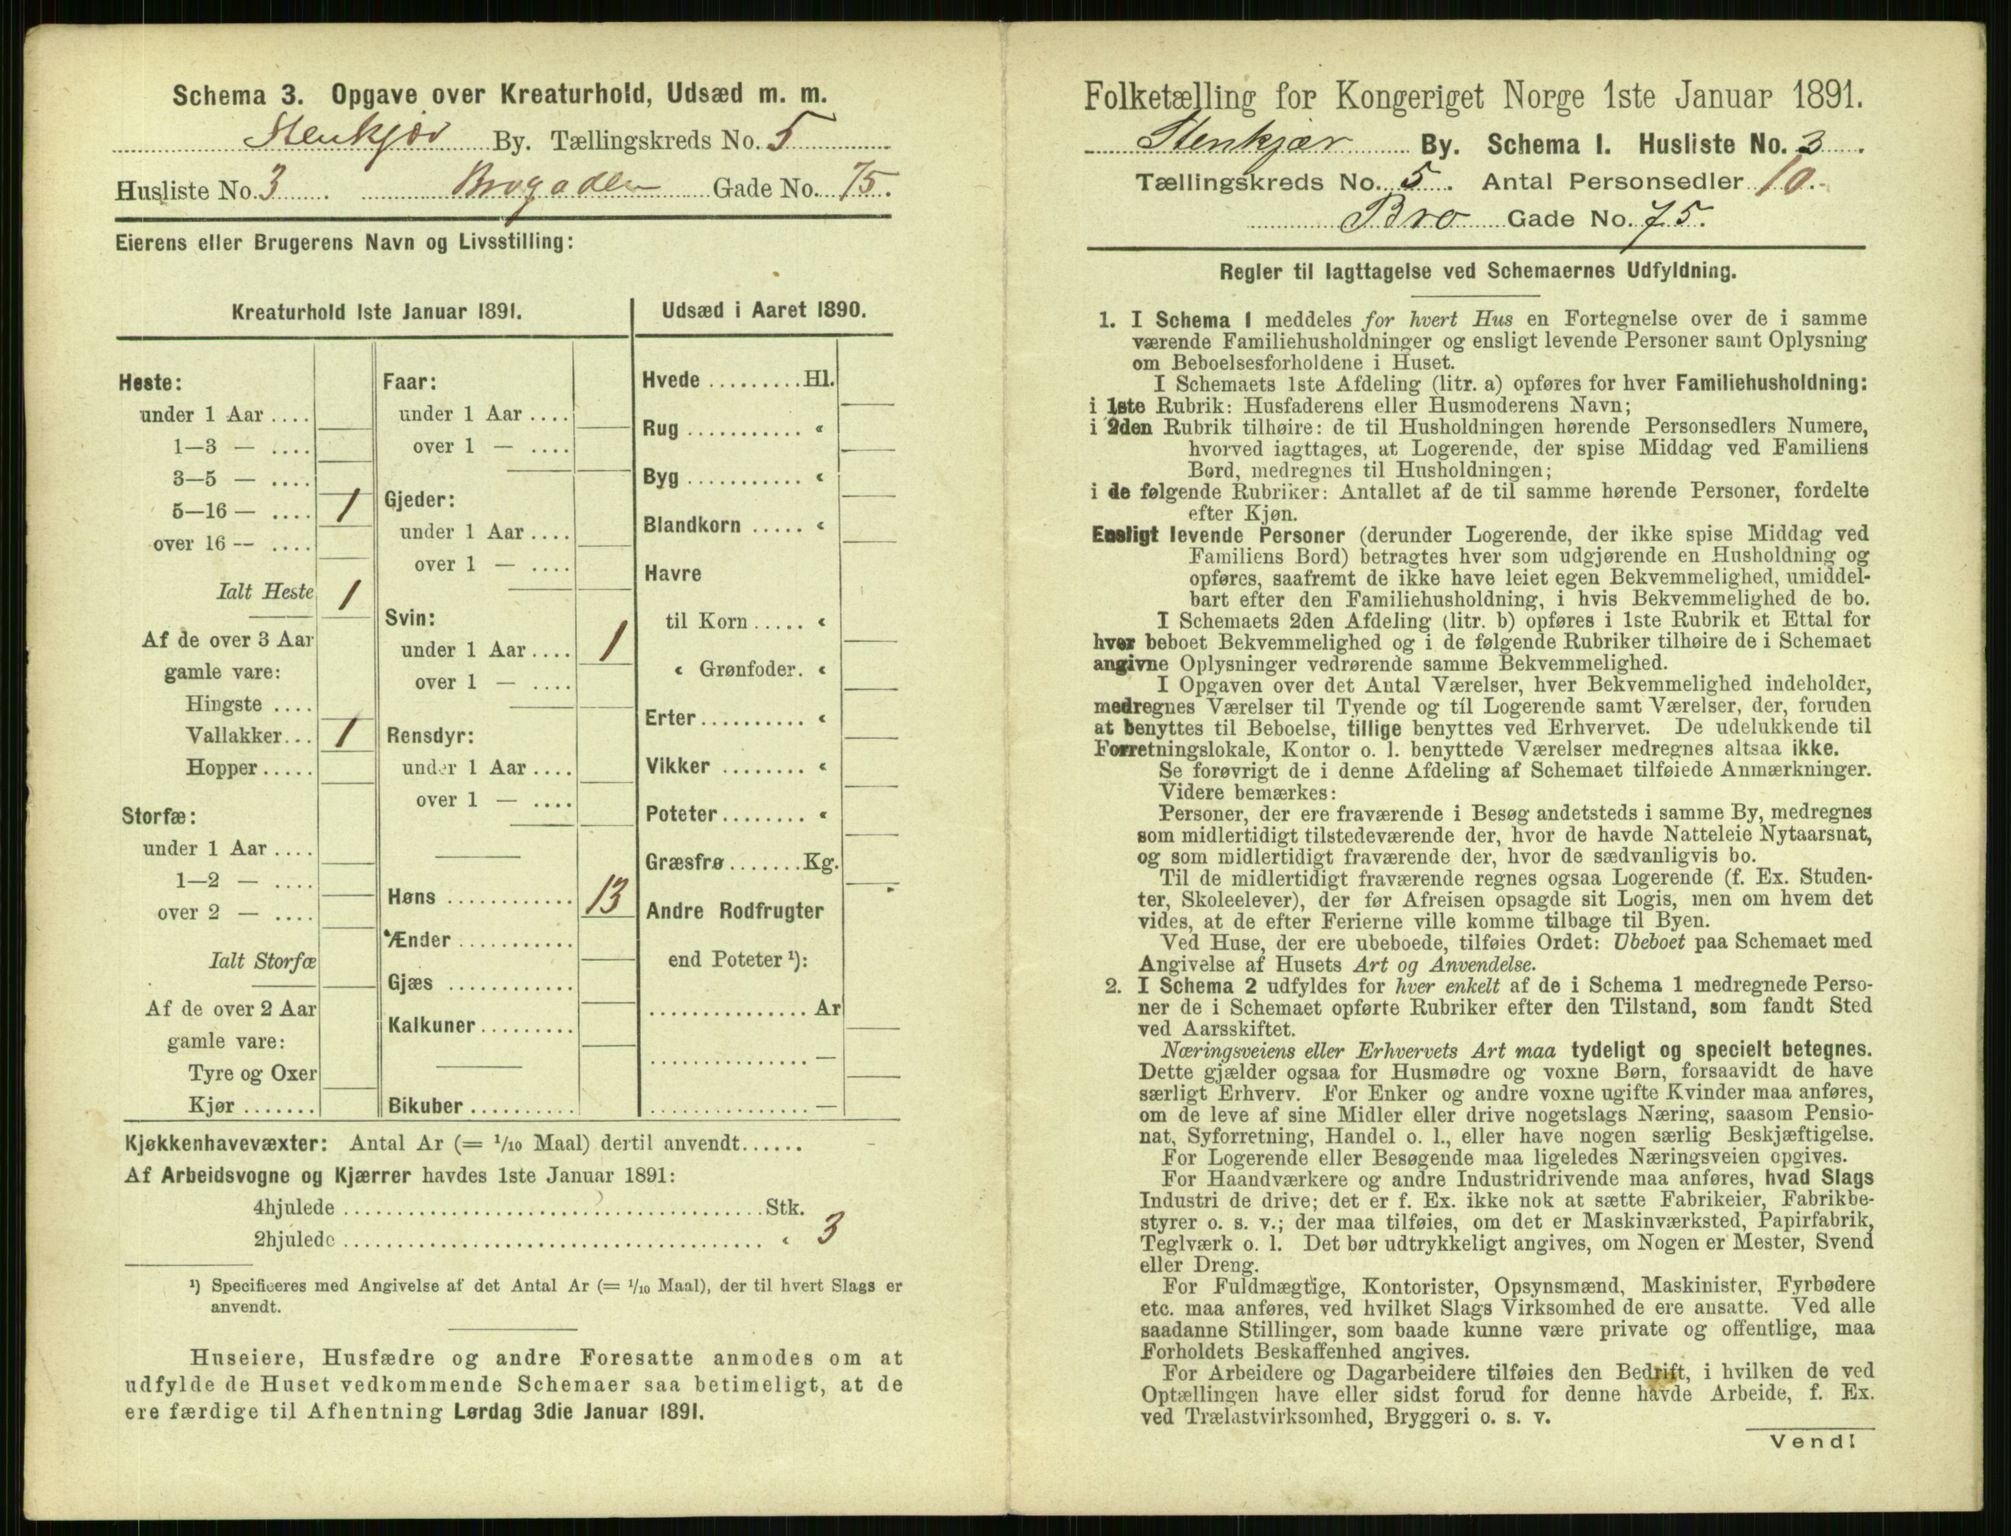 Schema 3. Opgave over Kreaturhold, Udsæd m. m.
Stenkjær By. Tællingskreds No. 5
Husliste No. 3 Brogaden Gade No. 75.
Eierens eller Brugerens Navn og Livsstilling:
Kreaturhold 1ste Januar 1891.
Heste:
under 1 Aar ....
1—3 — ....
3—5 — ....
5—16 — .... 1
over 16 — ....
Ialt Heste 1
Af de over 3 Aar
gamle vare:
Hingste ....
Vallakker... 1
Hopper.....
Storfæ:
under 1 Aar ....
1—2 — ....
over 2 — ....
Ialt Storfæ
Af de over 2 Aar
gamle vare:
Tyre og Oxer
Kjør .......
Faar:
under 1 Aar ....
over 1 — ....
Gjeder:
under 1 Aar ....
over 1 — ....
Svin:
under 1 Aar .... 1
over 1 — ....
Rensdyr:
under 1 Aar ....
over 1 — ....
Høns ............ 13
Ænder ...........
Gjæs ............
Kalkuner.........
Bikuber ..........
Udsæd i Aaret 1890.
Hvede .........Hl.
Rug ........... «
Byg ........... «
Blandkorn ..... «
Havre
til Korn ..... «
« Grønfoder. «
Erter.......... «
Vikker ........ «
Poteter........ «
Græsfrø .......Kg.
Andre Rodfrugter
end Poteter ¹):
............... Ar
............... —
............... —
Kjøkkenhavevæxter: Antal Ar (= 1/10 Maal) dertil anvendt......
Af Arbeidsvogne og Kjærrer havdes 1ste Januar 1891:
4hjulede ....................................... Stk.
2hjulede ....................................... « 3
¹) Specificeres med Angivelse af det Antal Ar (= 1/10 Maal), der til hvert Slags er
anvendt.
Huseiere, Husfædre og andre Foresatte anmodes om at
udfylde de Huset vedkommende Schemaer saa betimeligt, at de
ere færdige til Afhentning Lørdag 3die Januar 1891.
Folketælling for Kongeriget Norge 1ste Januar 1891.
Stenkjær By. Schema 1. Husliste No. 3
Tællingskreds No. 5. Antal Personsedler 10.
Bro Gade No. 75.
Regler til Iagttagelse ved Schemaernes Udfyldning.
1. I Schema 1 meddeles for hvert Hus en Fortegnelse over de i samme
værende Familiehusholdninger og ensligt levende Personer samt Oplysning
om Beboelsesforholdene i Huset.
I Schemaets 1ste Afdeling (litr. a) opføres for hver Familiehusholdning:
i 1ste Rubrik: Husfaderens eller Husmoderens Navn;
i 2den Rubrik tilhøire: de til Husholdningen hørende Personsedlers Numere,
hvorved iagttages, at Logerende, der spise Middag ved Familiens
Bord, medregnes til Husholdningen;
i de følgende Rubriker: Antallet af de til samme hørende Personer, fordelte
efter Kjøn.
Ensligt levende Personer (derunder Logerende, der ikke spise Middag ved
Familiens Bord) betragtes hver som udgjørende en Husholdning og
opføres, saafremt de ikke have leiet egen Bekvemmelighed, umiddel-
bart efter den Familiehusholdning, i hvis Bekvemmelighed de bo.
I Schemaets 2den Afdeling (litr. b) opføres i 1ste Rubrik et Ettal for
hver beboet Bekvemmelighed og i de følgende Rubriker tilhøire de i Schemaet
angivne Oplysninger vedrørende samme Bekvemmelighed.
I Opgaven over det Antal Værelser, hver Bekvemmelighed indeholder,
medregnes Værelser til Tyende og til Logerende samt Værelser, der, foruden
at benyttes til Beboelse, tillige benyttes ved Erhvervet. De udelukkende til
Forretningslokale, Kontor o. l. benyttede Værelser medregnes altsaa ikke.
Se forøvrigt de i denne Afdeling af Schemaet tilføiede Anmærkninger.
Videre bemærkes:
Personer, der ere fraværende i Besøg andetsteds i samme By, medregnes
som midlertidigt tilstedeværende der, hvor de havde Natteleie Nytaarsnat,
og som midlertidigt fraværende der, hvor de sædvanligvis bo.
Til de midlertidigt fraværende regnes ogsaa Logerende (f. Ex. Studen-
ter, Skoleelever), der før Afreisen opsagde sit Logis, men om hvem det
vides, at de efter Ferierne ville komme tilbage til Byen.
Ved Huse, der ere ubeboede, tilføies Ordet: Ubeboet paa Schemaet med
Angivelse af Husets Art og Anvendelse.
2. I Schema 2 udfyldes for hver enkelt af de i Schema 1 medregnede Perso-
ner de i Schemaet opførte Rubriker efter den Tilstand, som fandt Sted
ved Aarsskiftet.
Næringsveiens eller Erhvervets Art maa tydeligt og specielt betegnes.
Dette gjælder ogsaa for Husmødre og voxne Børn, forsaavidt de have
særligt Erhverv. For Enker og andre voxne ugifte Kvinder maa anføres,
om de leve af sine Midler eller drive nogetslags Næring, saasom Pensio-
nat, Syforretning, Handel o. l., eller have nogen særlig Beskjæftigelse.
For Logerende eller Besøgende maa ligeledes Næringsveien opgives.
For Haandværkere og andre Industridrivende maa anføres, hvad Slags
Industri de drive; det er f. Ex. ikke nok at sætte Fabrikeier, Fabrikbe-
styrer o. s. v.; der maa tilføies, om det er Maskinværksted, Papirfabrik,
Teglværk o. l. Det bør udtrykkeligt angives, om Nogen er Mester, Svend
eller Dreng.
For Fuldmægtige, Kontorister, Opsynsmænd, Maskinister, Fyrbødere
etc. maa anføres, ved hvilket Slags Virksomhed de ere ansatte. Ved alle
saadanne Stillinger, som baade kunne være private og offentlige, maa
Forholdets Beskaffenhed angives.
For Arbeidere og Dagarbeidere tilføies den Bedrift, i hvilken de ved
Optællingen have eller sidst forud for denne havde Arbeide, f. Ex.
ved Trælastvirksomhed, Bryggeri o. s. v.
Vend!